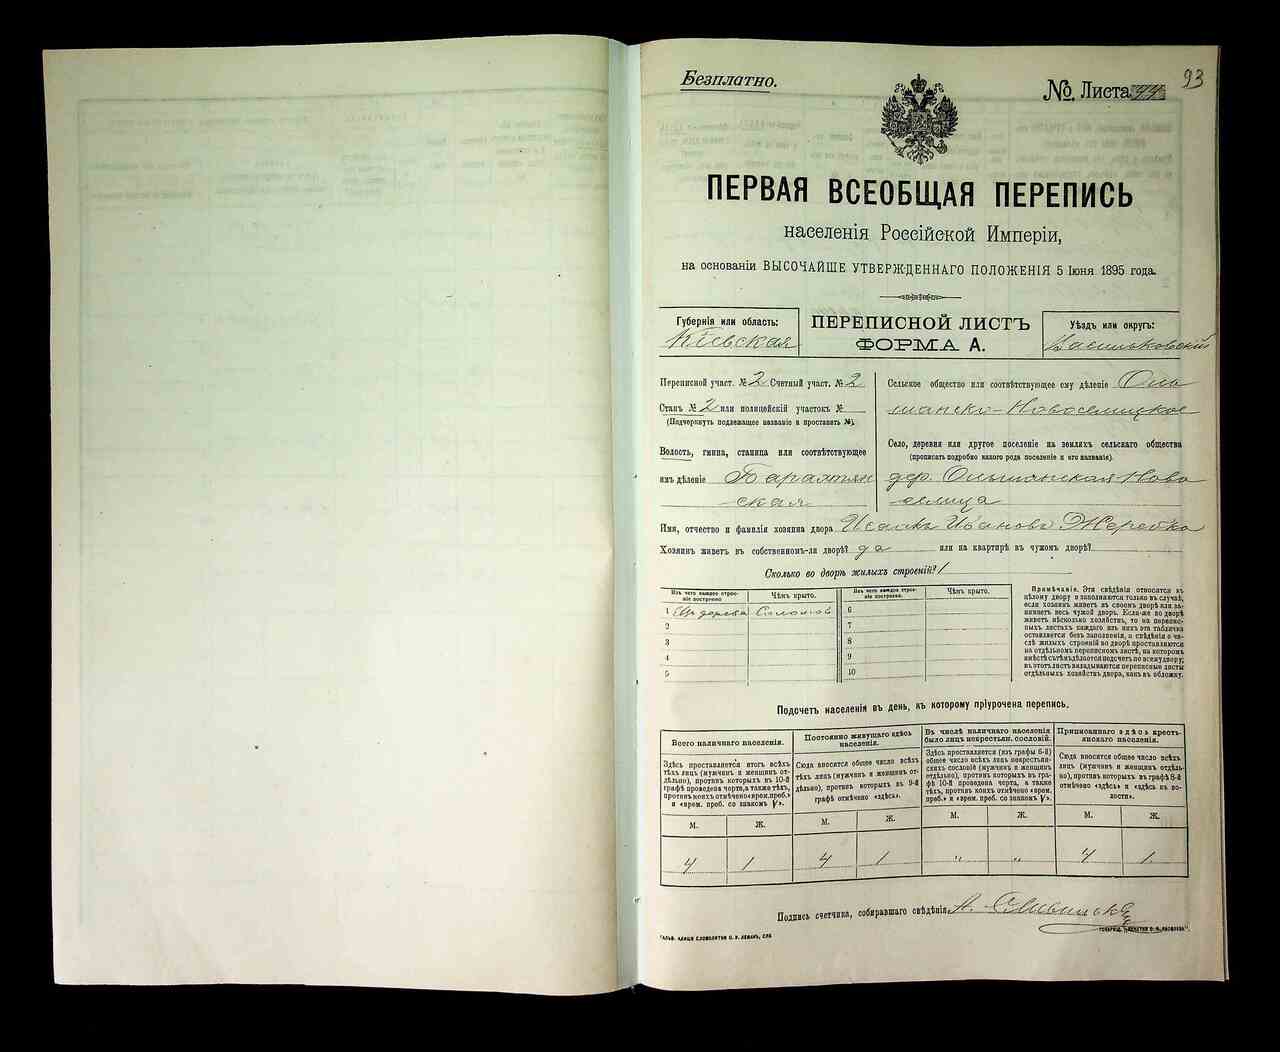 Безплатно.
№ Листа 44
93
ПЕРВАЯ ВСЕОБЩАЯ ПЕРЕПИСЬ
населенія Россійской Имперіи,
на основаніи ВЫСОЧАЙШЕ УТВЕРЖДЕННАГО ПОЛОЖЕНІЯ 5 Іюня 1895 года.
Губернія или область:
Кіевская
ПЕРЕПИСНОЙ ЛИСТЪ
ФОРМА А.
Уѣздъ или округъ:
Васильковскій
Переписной участ. № 2 Счетный участ. № 2
Станъ № 2 или полицейскій участокъ №
(Подчеркнуть подлежащее названіе и проставить №).
Волость, гмина, станица или соотвѣтствующее
имъ дѣленіе Барахтян
ская
Сельское общество или соотвѣтствующее ему дѣленіе Оль
шанско-Новоселицкое
Село, деревня или другое поселеніе на земляхъ сельскаго общества
(прописать подробно какого рода поселеніе и его названіе).
дер. Ольшанская Ново
селица
Имя, отчество и фамилія хозяина двора Исакъ Ивановъ Жеребко
Хозяинъ живетъ въ собственномъ-ли дворѣ? да или на квартирѣ въ чужомъ дворѣ?
Сколько во дворѣ жилыхъ строеній? 1
Изъ чего каждое строе-
ніе построено
Чѣмъ крыто.
Изъ чего каждое строе-
ніе построено.
Чѣмъ крыто.
1 Изъ дерева Соломов 6
2 7
3 8
4 9
5 10
Примѣчаніе. Эти свѣдѣнія относятся къ
цѣлому двору и заполняются только въ случаѣ,
если хозяинъ живетъ въ своемъ дворѣ или за-
нимаетъ весь чужой дворъ. Если-же во дворѣ
живетъ нѣсколько хозяйствъ, то на перепис-
ныхъ листахъ каждаго изъ нихъ эта табличка
оставляется безъ заполненія, а свѣдѣнія о чи-
слѣ жилыхъ строеній во дворѣ проставляются
на отдѣльномъ переписномъ листѣ, на которомъ
вмѣстѣ съ тѣмъ дѣлается подсчетъ по всему двору;
въ этотъ листъ вкладываются переписные листы
отдѣльныхъ хозяйствъ двора, какъ въ обложку.
Подсчетъ населенія въ день, къ которому пріурочена перепись.
Всего наличнаго населенія.
Здѣсь проставляется итогъ всѣхъ
тѣхъ лицъ (мужчинъ и женщинъ от-
дѣльно), противъ которыхъ въ 10-й
графѣ проведена черта, а также тѣхъ,
противъ коихъ отмѣчено «врем. преб.»
и «врем. преб. со знакомъ V».
Постоянно живущаго здѣсь
населенія.
Сюда вносится общее число всѣхъ
тѣхъ лицъ (мужчинъ и женщинъ от-
дѣльно), противъ которыхъ въ 9-й
графѣ отмѣчено «здѣсь».
Въ числѣ наличнаго населенія
было лицъ некрестьян. сословій.
Здѣсь проставляется (изъ графы 6-й)
общее число всѣхъ лицъ некрестьян-
скихъ сословій (мужчинъ и женщинъ
отдѣльно), противъ которыхъ въ гра-
фѣ 10-й проведена черта, а также
тѣхъ, противъ коихъ отмѣчено «врем.
преб.» и «врем. преб. со знакомъ V».
Приписаннаго здѣсь кресть-
янскаго населенія.
Сюда вносится общее число всѣхъ
лицъ (мужчинъ и женщинъ отдѣль-
но), противъ которыхъ въ графѣ 8-й
отмѣчено «здѣсь» и «здѣсь въ во-
лости».
М. Ж. М. Ж. М. Ж. М. Ж.
4 1 4 1 „ „ 4 1
Подпись счетчика, собиравшаго свѣдѣнія, А.